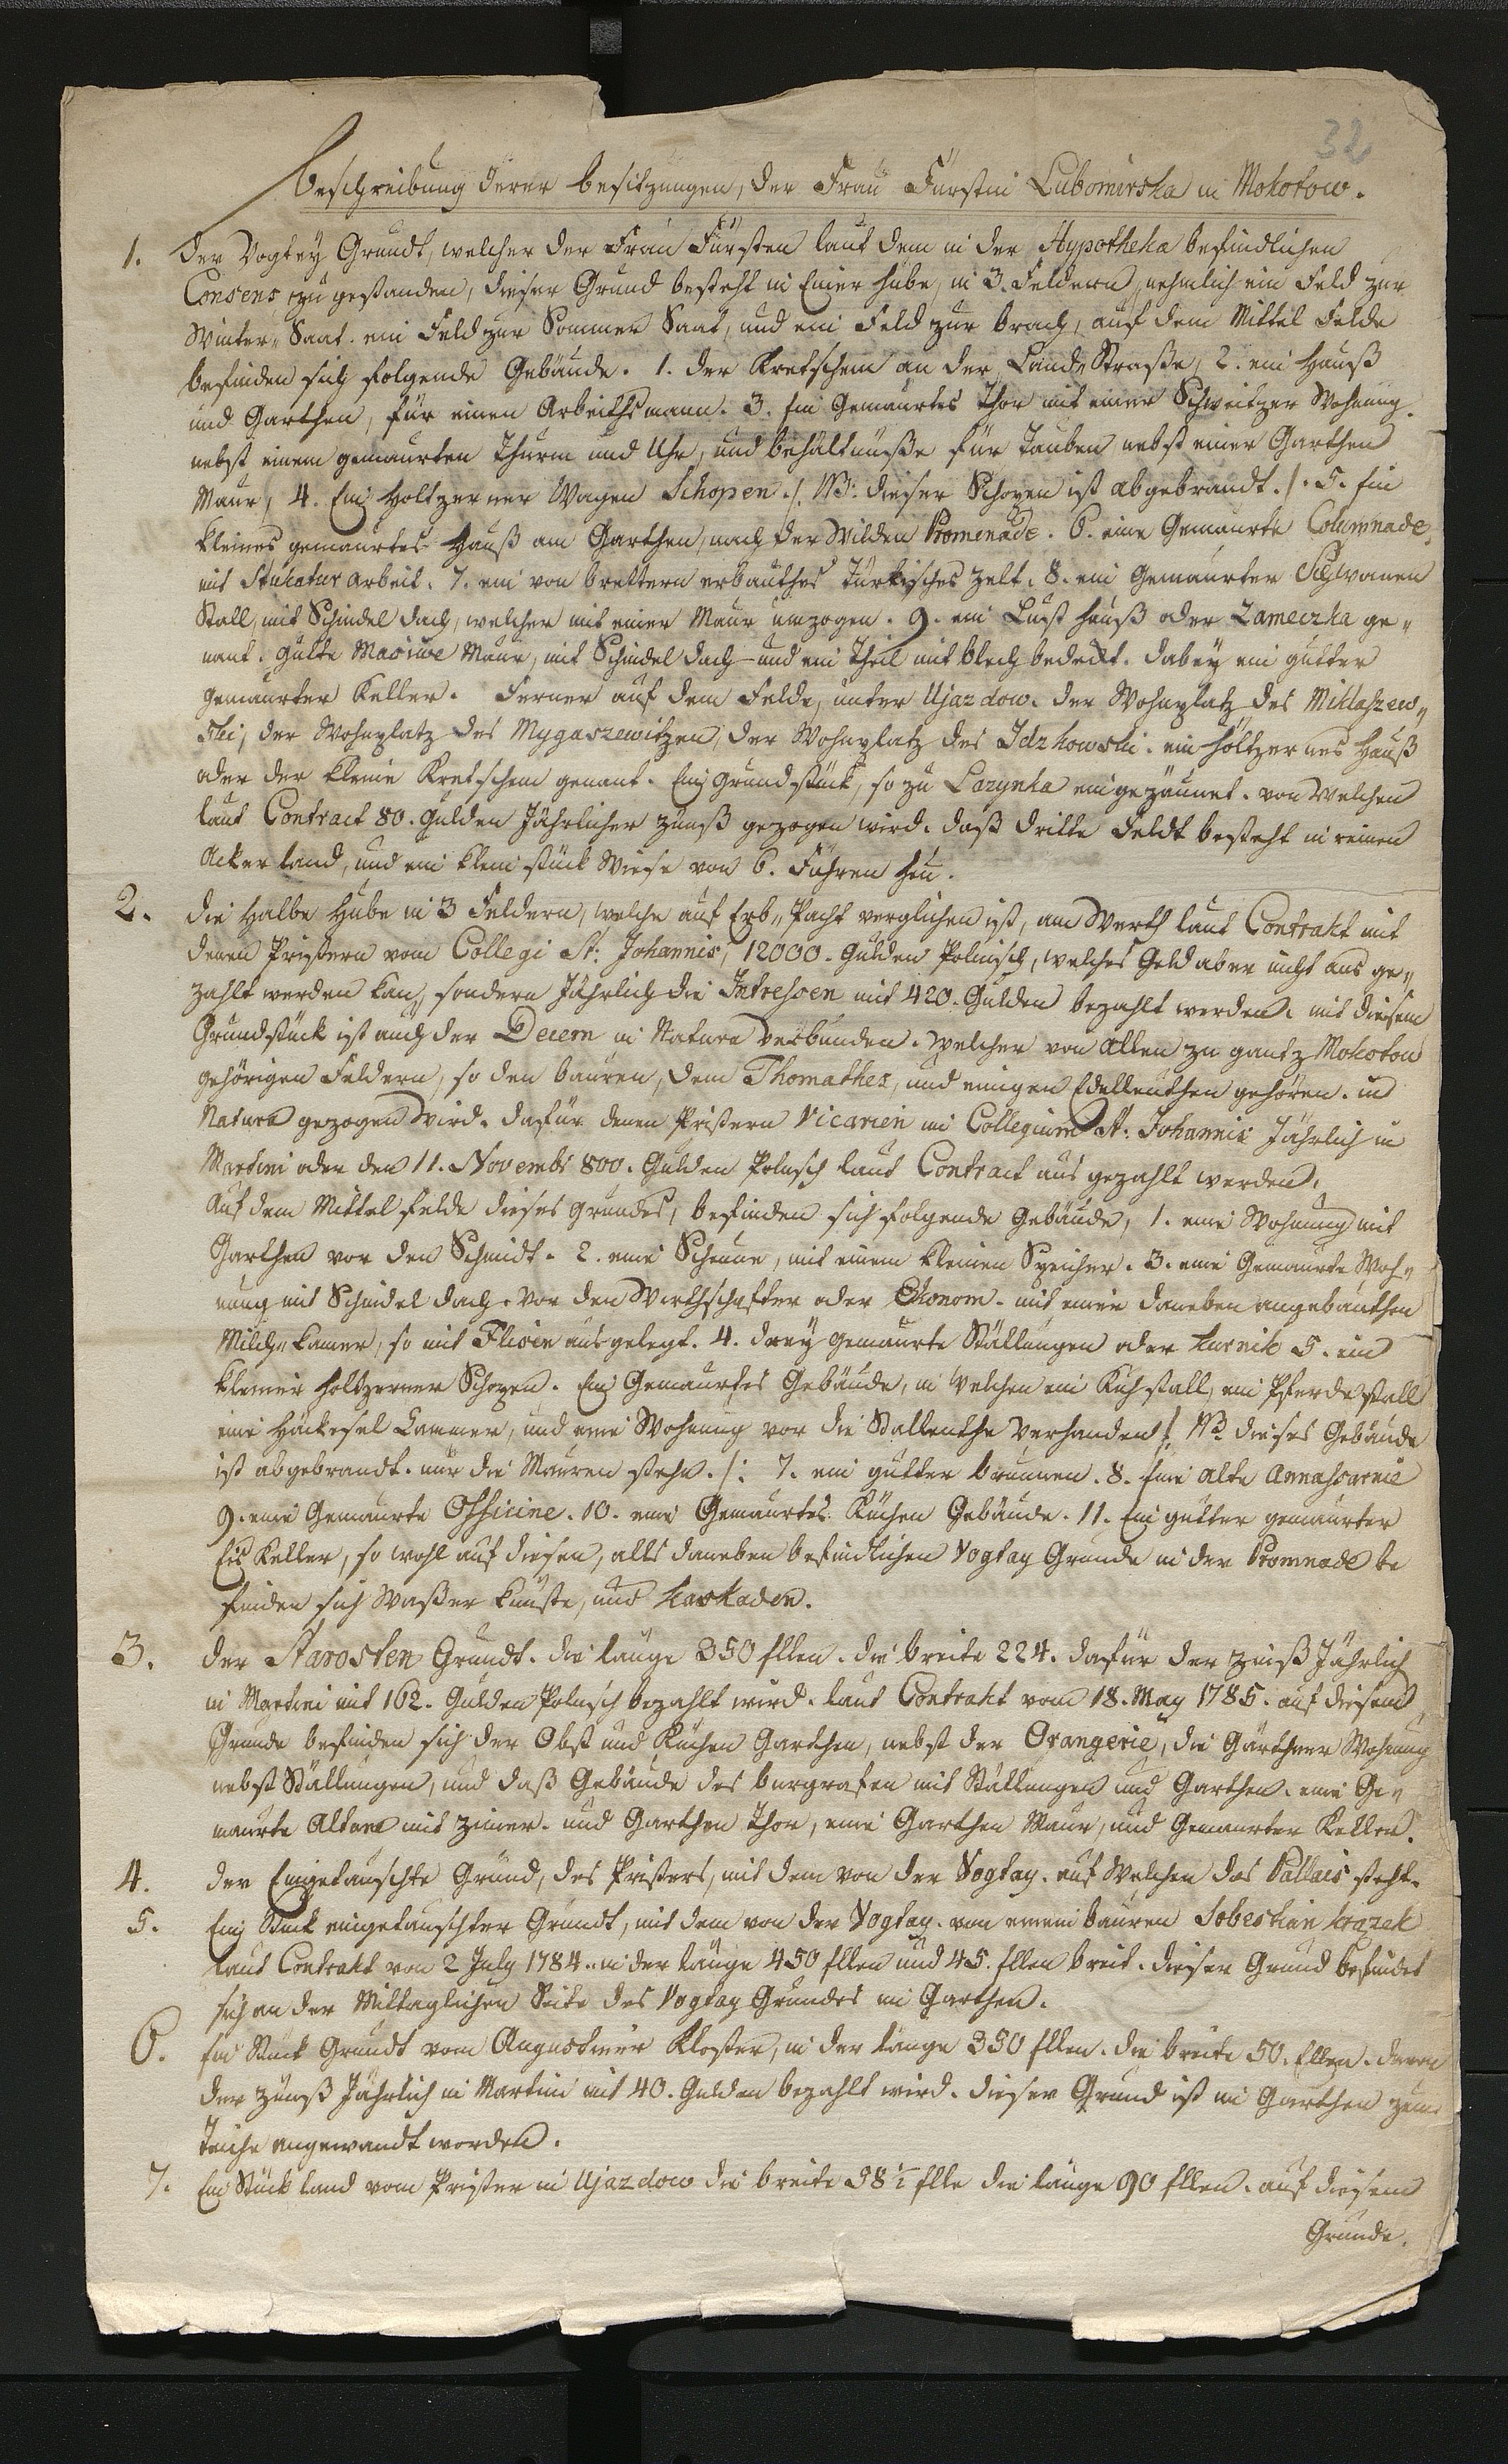 32
Beschreibung derer Besitzungen, der Frau Fürstin Lubomirska in Mokotow.
1. Der Vogtey Grundt, welcher der Frau Fürsten laut dem in der Hypotheka befindlichen
Consens, zu gestanden, dieser Grund besteht in Einer Hube, in 3. Feldern, nehmlich ein Feld zur
Winter„ Saat. ein Feld zur Sommer Saat, und ein Feld zur brach, auf dem Mittel Felde
befinden sich folgende Gebäude. 1. der Kretschem an der Land„Straße, 2. ein Hauß
und Garthen, für einen Arbeithsmann. 3. Ein Gemaurtes Thor mit einer Schweitzer Wohnung.
nebst einem gemaurten Thurm und Uhr, und behältnuße für Tauben nebst einer Garthen
Maur, 4. Ein Holtzerner Wagen Schopen ./. NB: dieser Schopen ist abgebrandt. /. 5. Ein
kleines gemaurtes Hauß am Garthen, nach der Wilden Promenade. 6. eine Gemaurte Columnade,
mit Stukatur arbeit. 7. ein von brettern erbauthes Türkisches Zelt. 8. ein Gemaurter
Stall, mit Schindel dach, welcher mit einer Maur umzogen. 9. ein Lust Hauß oder Zameczka ge„
nant. gutte Masiwe Maur, mit Schindel dach und ein Theil mit blech bedeckt. dabey ein gutter
gemaurter Keller. Ferner auf dem Felde, unter Ujazdow. der Wohnplatz des Miklaszew„
ski, der Wohnplatz des Mygaszewitzen, der Wohnplatz des Idzkowski. ein höltzernes Hauß
oder der kleine Kretschem genant. Ein Grundstück, so zu Lazynka eingezäunet. von Welchen
laut Contract 80. Gulden Jährlicher Zünß gezogen wird. daß dritte Feldt besteht in reinen
Acker land, und ein klein stück Wiese von 6. Fuhren Heu.
2. Die Halbe Hube in 3 Feldern, welche auf Erb„ Pacht verglichen ist, am Werth laut Contrakt mit
denen Pristern vom Collegi St: Johannis, 12000. Gulden Polnisch, welches Geld aber nicht aus ge„
zahlt werden kan, sondern Jährlich die Intressen mit 420. Gulden bezahlt werden. mit diesem
Grundstück ist auch der Decem in Natura verbunden. Welcher von Allen zu gantz Mokotow
gehörigen Feldern, so den bauren, dem Thomathes, und einigen Edelleuthen gehören. in
Natura gezogen wird. dafür denen Pristern Vicarien im Collegium St: Johannis Jährlich in
Martini oder den 11. Novembr 800. Gulden Polnisch laut Contract aus gezahlt werden.
Auf dem Mittel felde dieses Grundes, befinden sich folgende Gebäude, 1. eine Wohnung mit
Garthen vor den Schmidt. 2. eine Scheune, mit einem kleinen Speicher. 3. eine Gemaurte Woh„
nung mit Schindel dach. vor den Wirthschafter oder Ekonom. mit einer daneben angebauthen
Milch„ kamer, so mit Flisen ausgelegt. 4. drey gemaurte Stallungen oder kurnik 5. ein
kleiner Holtzerner Schopen. Ein Gemaurtes Gebäude, in Welchen ein Kuh stall, ein Pferde stall
eine Häcksel Cammer, und eine Wohnung vor die Stalleuthe Verhanden /: NB dieses Gebäude
ist abgebrandt. nur die Mauren stehn. /: 7. ein gutter brunnen. 8. Eine alte
9. eine Gemaurte Officine. 10. eine Gemaurtes Küchen Gebäude. 11. Ein gutter gemaurter
Eis Keller, so wohl auf diesen, alls daneben befindlichen Vogtay Grunde in der Promnade be
finden sich Waßer künste, und Kaskaden.
3. Der Starosten Grundt. die länge 350 Ellen. die breite 224. dafür der Zinß Jährlich
in Martini mit 162. Gulden Polnisch bezahlt wird. laut Contrakt vom 18. May 1785. auf diesem
Grunde befinden sich der Obst und Küchen Garthen, nebst der Orangerie, die Gärthner Wohnung
nebst Stallungen, und daß Gebäude des burgrafen mit Stallungen und Garthen. eine Ge„
maurte Altane mit Zimer. und Garthen Thor, eine Garthen Maur, und Gemaurter Keller.
4. Der Eingetauschte Grund, des Pristers, mit dem von der Vogtay. auf Welchen das Pallais steht.
5. Ein Stück eingetauschter Grundt, mit dem von der Vogtay. von einem bauren Sobestian
laut Contrakt von 2 July 1784. in der länge 450 Ellen und 45. Ellen breit. dieser Grund befindet
sich an der Mittaglichen Seite des Vogtay Grundes im Garthen.
6. Ein Stück Grundt vom Augustiner Kloster, in der länge 350 Ellen. die breite 50. Ellen. davon
der Zünß Jährlich in Martini mit 40. Gulden bezahlt wird. dieser Grund ist im Garthen zum
Teiche angewandt worden.
7. Ein Stück land vom Prister in Ujazdow die breite 58 1/2 Elle die länge 90 Ellen. auf diesem
Grunde.